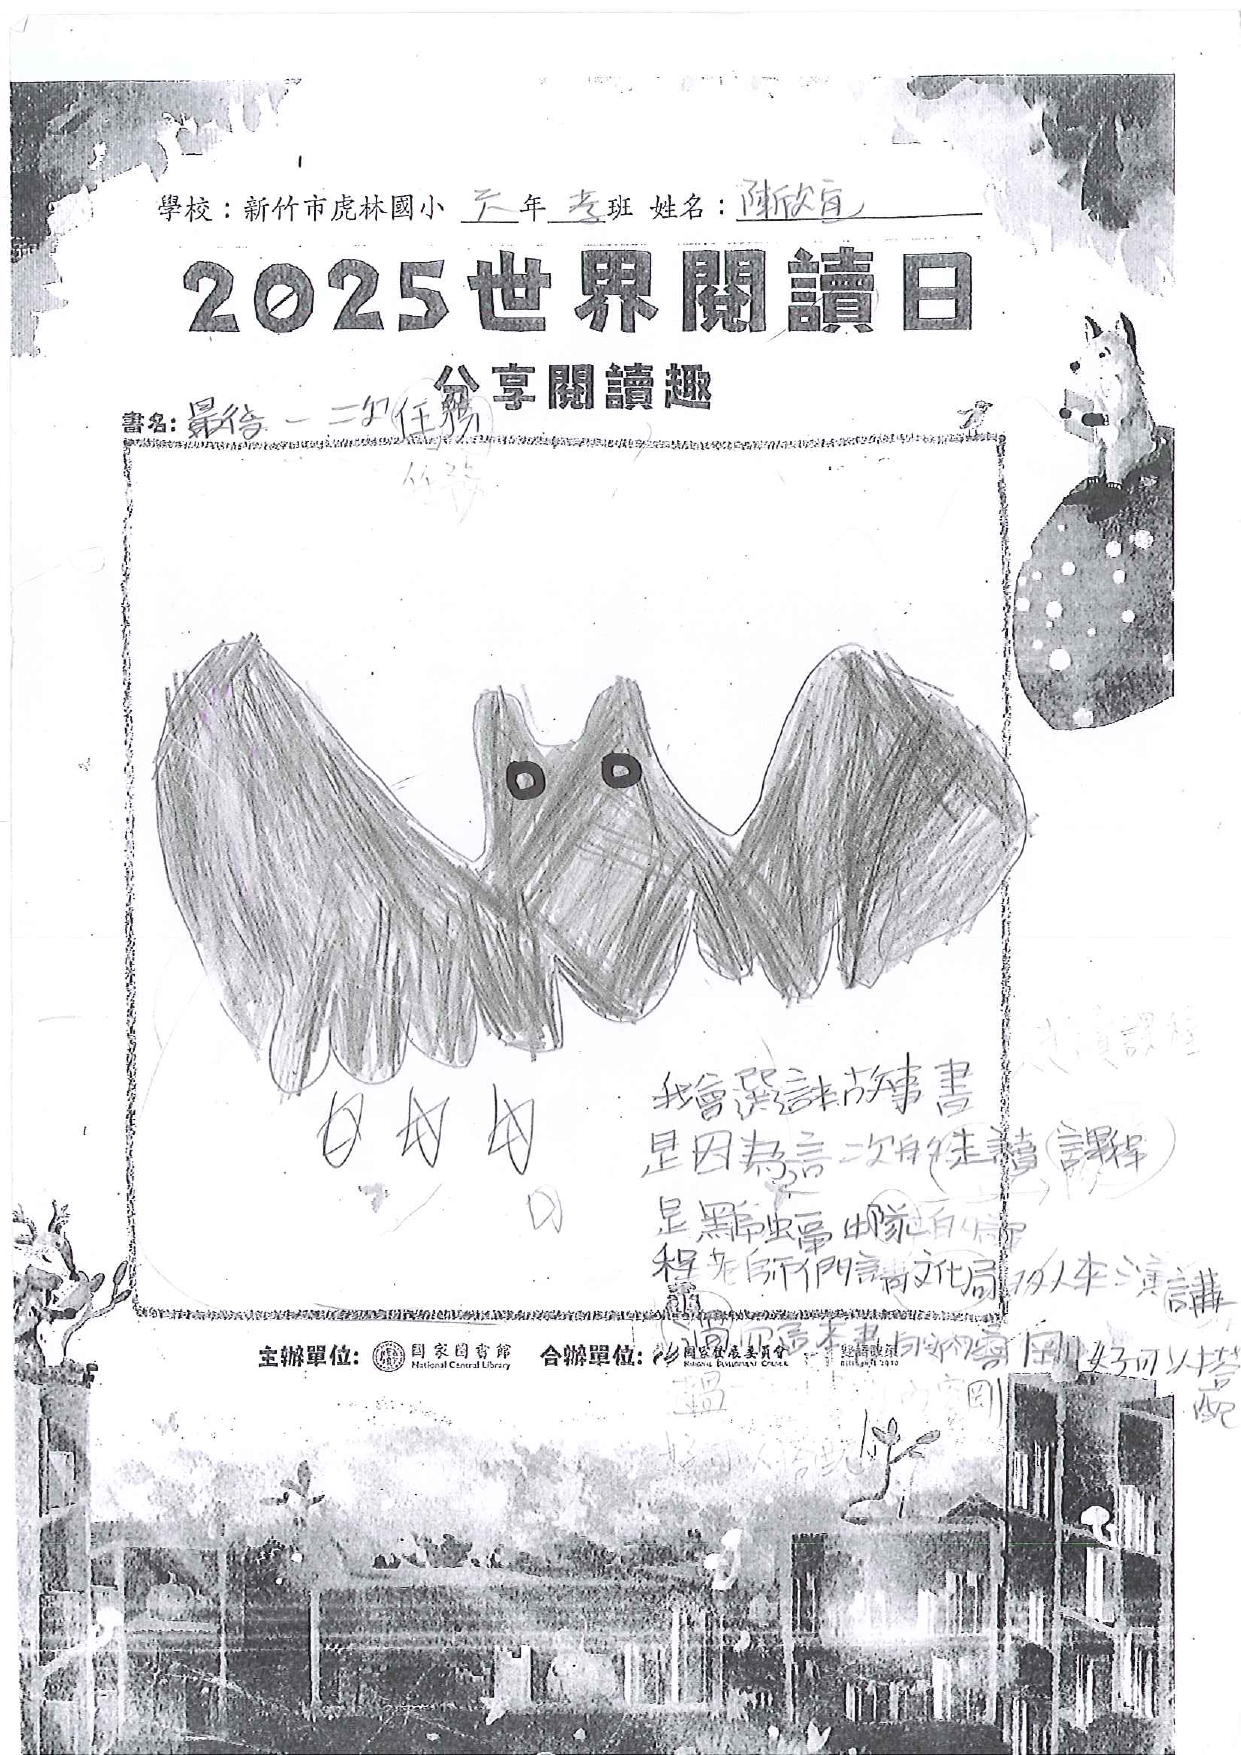 學校：新竹市虎林國小 六年孝班 姓名：陳欣宜
2025世界閱讀日
分享閱讀趣
書名: 最後一次任務
任務
我會選這本故事書
是因為這次的走讀課程
是黑蝙蝠中隊
程老師們請文化局的人來演講
這本書的內容剛好可以搭配
蝠 內容剛
好可以搭配
演課程
主辦單位: 國家圖書館 National Central Library 合辦單位: 國家發展委員會 NATIONAL DEVELOPMENT COUNCIL